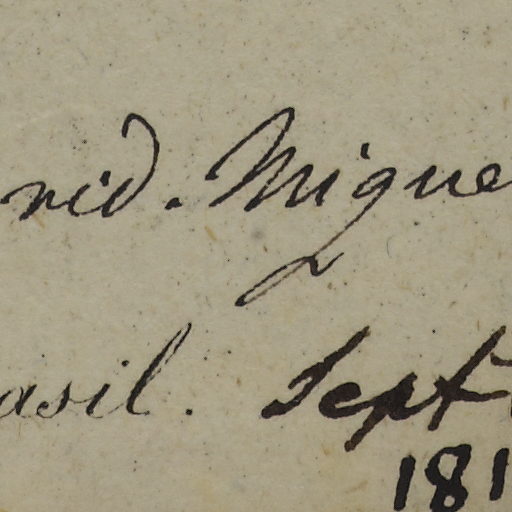 rid. Migue
asil. Sept
181